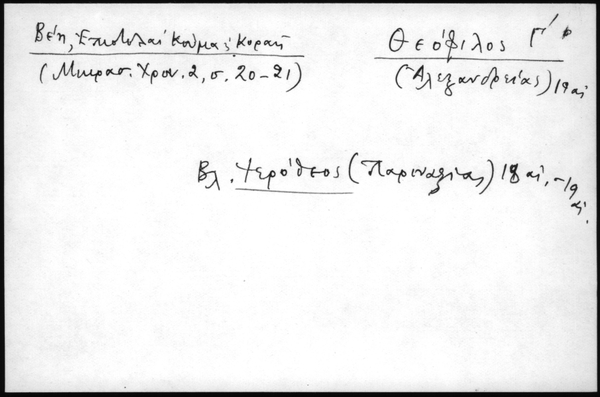 Βέη, Ἐπιστολαί Κούμα & Κοραῆ
(Μικρασ. Χρον. 2, σ. 20-21)
Θεόφιλος Γ΄
(Ἀλεξανδρείας) 19 αἰ
Βλ. Ἱερόθεος (Παροναξίας) 18 αἰ. - 19 αἰ.